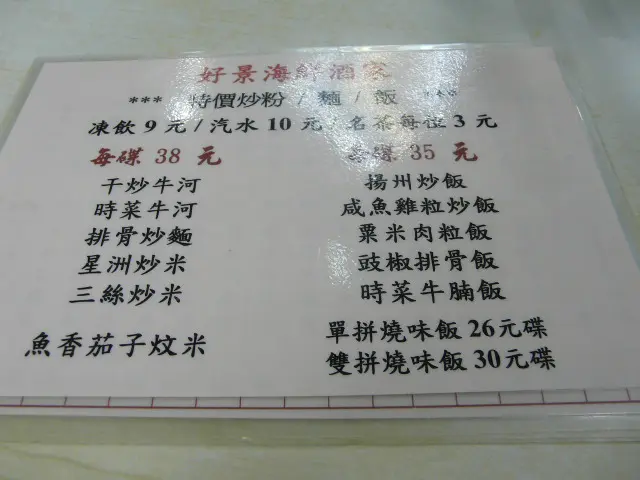 好景海鮮酒家
*** 特價炒粉 / 麵 / 飯 ***
凍飲 9 元 / 汽水 10 元 / 名茶每位 3 元
每碟 38 元
干炒牛河
時菜牛河
排骨炒麵
星洲炒米
三絲炒米
魚香茄子炆米
每碟 35 元
揚州炒飯
咸魚雞粒炒飯
粟米肉粒飯
豉椒排骨飯
時菜牛腩飯
單拼燒味飯 26元碟
雙拼燒味飯 30元碟